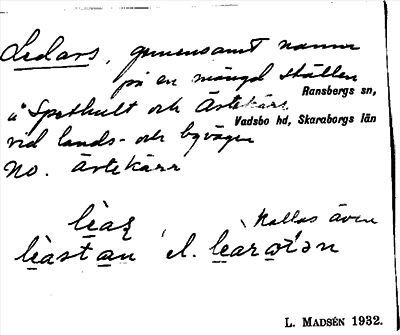 Ledars, gemensamt namn
på en mängd ställen
Ransbergs sn,
å Spethult och Ärtekärr
Vadsbo hd, Skaraborgs län
vid lands- och byvägen
No. Ärtekärr
Kallas även
el.
L. MADSÉN 1932.